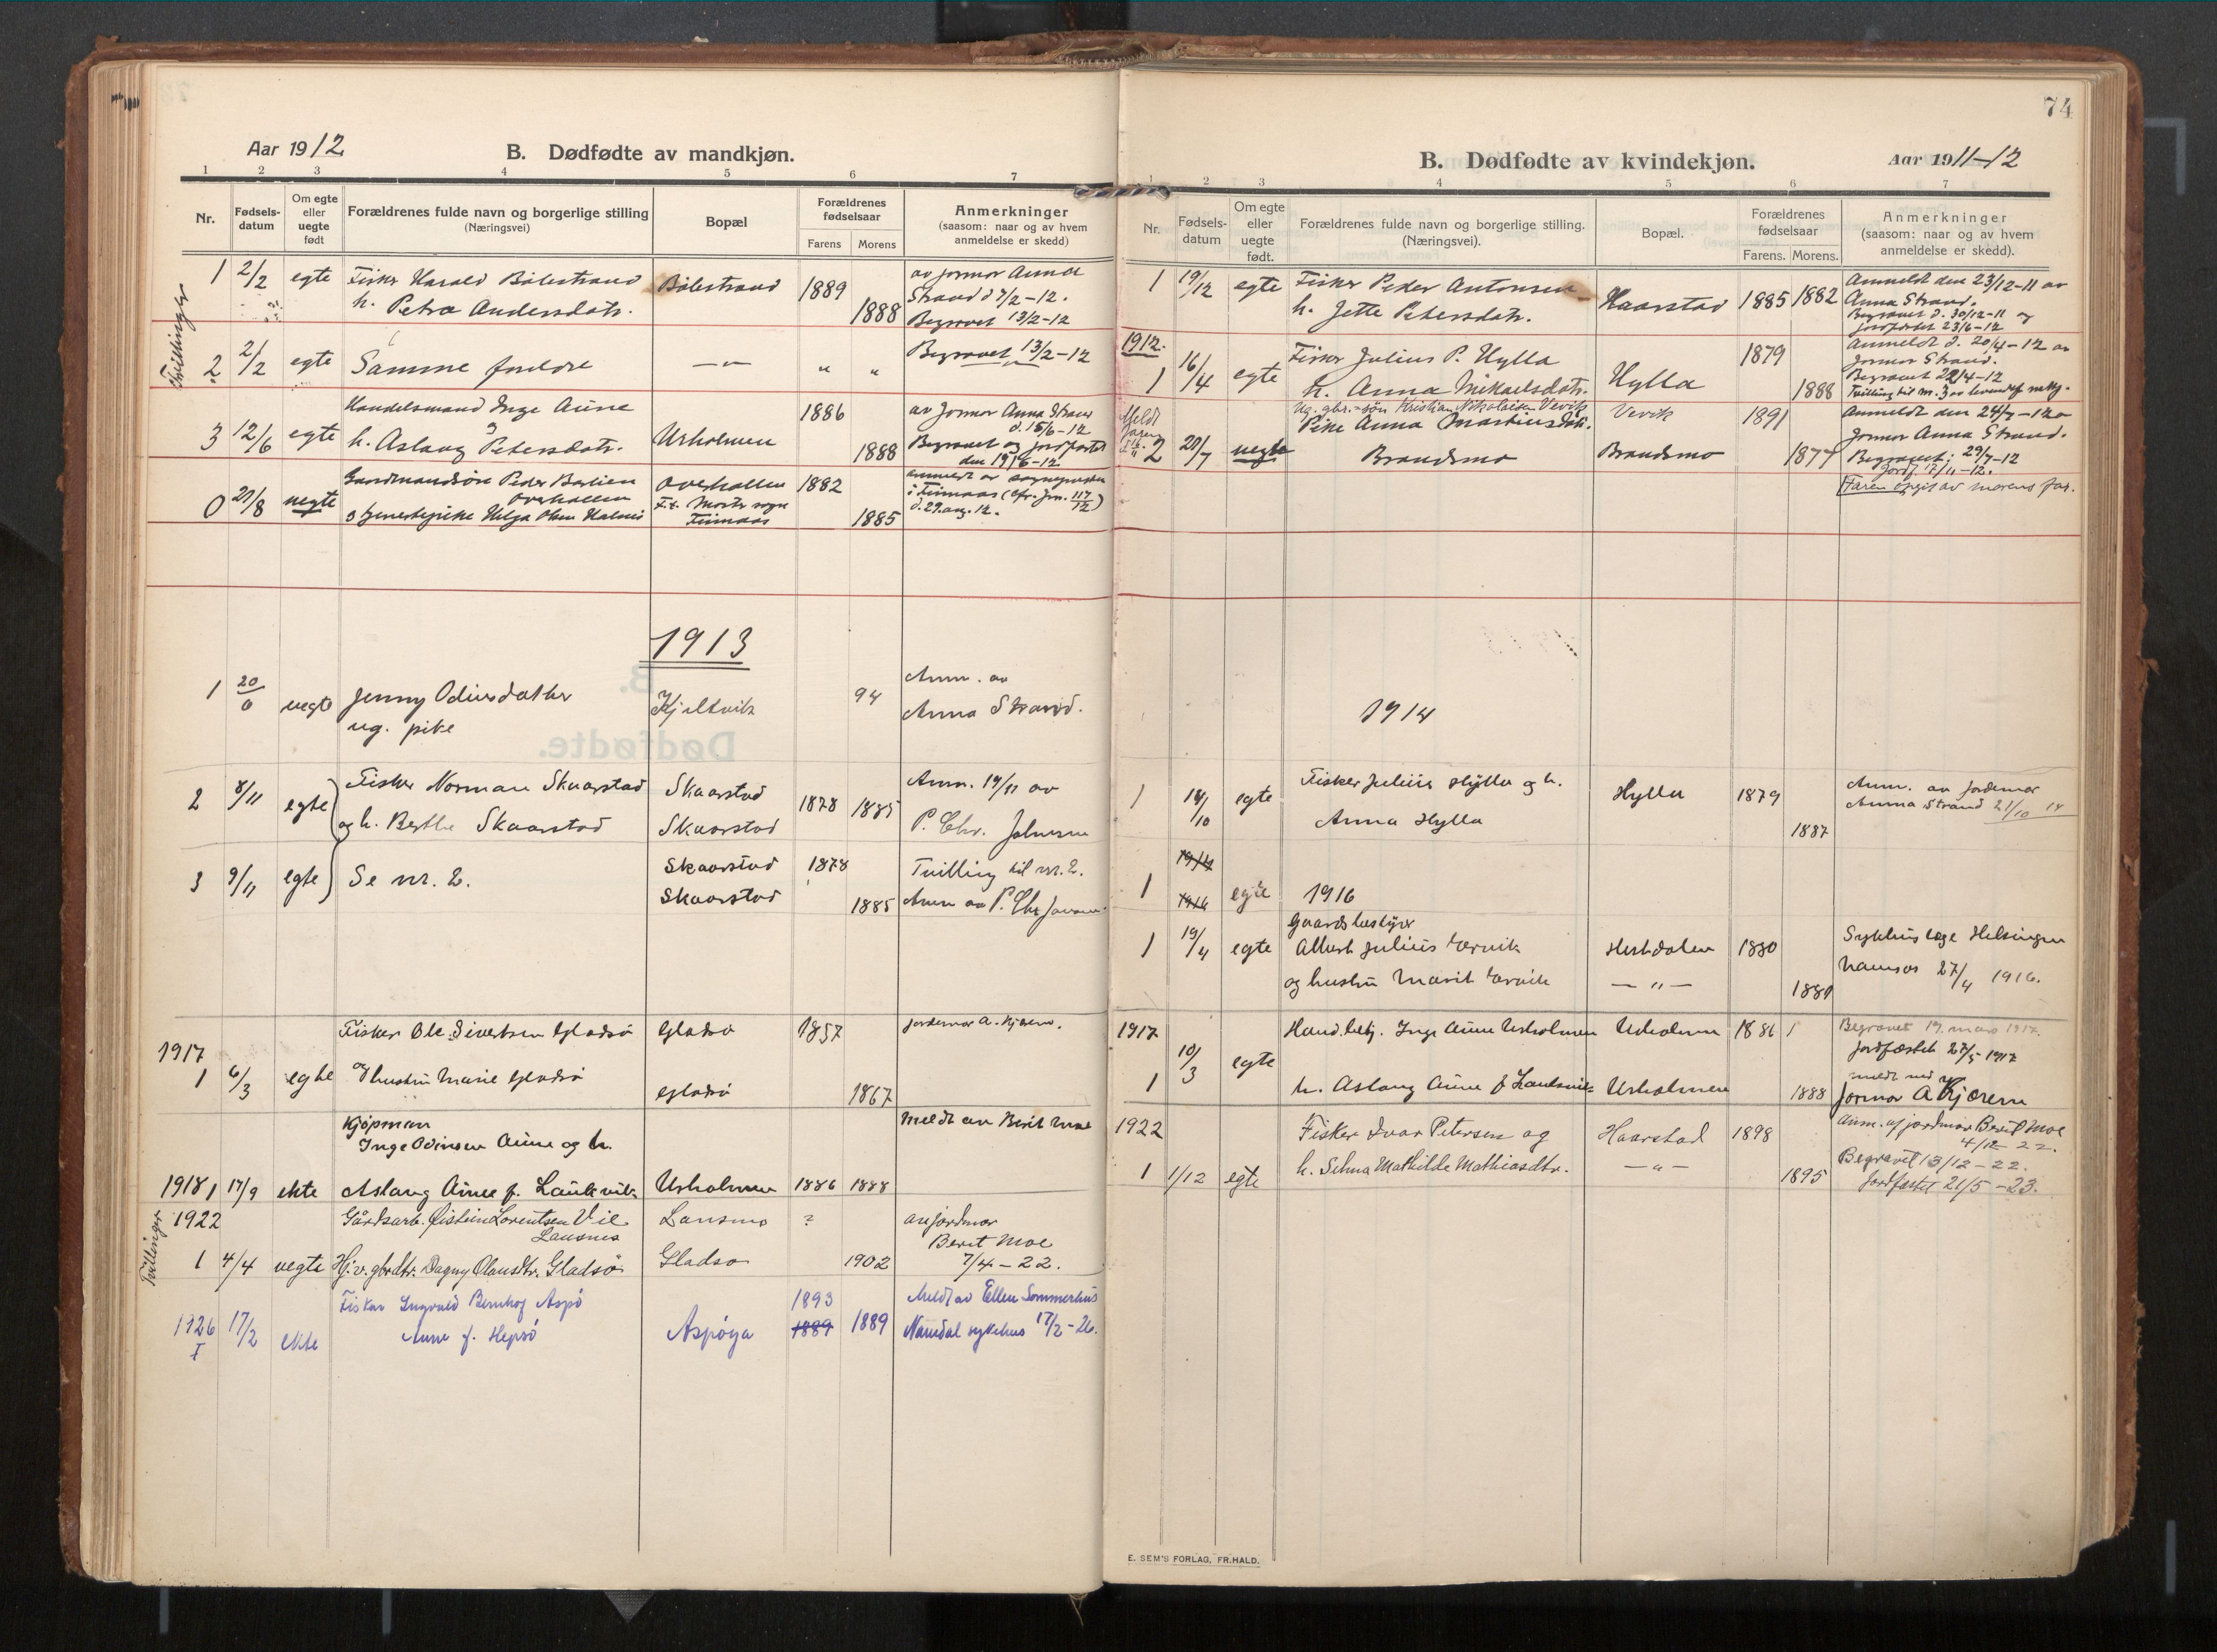 74
Aar 1912
B. Dødfødte av mandkjøn.
1 2 3 4 5 6 7
Nr.
Fødsels-
datum
Om egte
eller
uegte
født
Forældrenes fulde navn og borgerlige stilling
(Næringsvei)
Bopæl
Forældrenes
fødselsaar
Farens Morens
Anmerkninger
(saasom: naar og av hvem
anmeldelse er skedd)
Tvillinger
1 2/2 egte Fisker Harald Bølestrand Bølestrand 1889 av jormor Anna
h. Petra Andersdatr. 1888 Strand d 7/2-12.
Begravet 13/2-12
2 2/2 egte Samme foreldre —"— " " Begravet 13/2-12
Handelsmand Inge Aune 1886 av Jormor Anna Strand
d. 15/6-12
3 12/6 egte h. Aslaug Petersdatr. Urholmen 1888 Begravet og jordfæstet
den 19/6-12
Gaardmandsøn Peder Overhallen 1882
Overhallen
0 27/8 uegte tjenestepike Helga Olsen 1885 d. 29. aug. 12.
1913
1 20/6 uegte Jenny Odinsdatter Kjeltvik 94 Anm. av
ug. pike Anna Strand.
2 8/11 egte Fisker Norman Skaarstad Skaarstad 1878 1885 Anm. 14/11 av
og h. Berthe Skaarstad Skaarstad P. Chr. Johnsen
3 9/11 egte Se nr. 2. Skaarstad 1878 Tvilling til nr. 2.
Skaarstad 1885 Anm av P. Chr
1917 Fisker Ole Sivertsen Gladsø Gladsø 1857 jordemor A. Kjærem.
1 6/3 egte og hustru Marie Gladsø Gladsø 1867
Kjøpman Meldt av Berit Moe
Inge Odinsen Aune og h.
1918 1 17/9 ekte Aslaug Aune f. Laukvik Urholmen 1886 1888
Tvillinger
1922 Gårdsarb. Øistein Lorentsen Vie Lausnes ? av jordmor
Lausnes Berit Moe
1 4/4 uegte Hj.v. gbrdtr. Dagny Olausdtr. Gladsø Gladsø 1902 7/4-22.
Fisker Ingvald Bernhof Aspö 1893 Meldt av Ellen Sommerhus
1926 I 17/2 ekte Anne f. Hepsö Aspøya 1889 1889 Namdal sykehus 17/2-26.
B. Dødfødte av kvindekjøn.
Aar 1911-12
1 2 3 4 5 6 7
Nr.
Fødsels-
datum
Om egte
eller
uegte
født.
Forældrenes fulde navn og borgerlige stilling.
(Næringsvei).
Bopæl.
Forældrenes
fødselsaar
Farens. Morens.
Anmerkninger
(saasom: naar og av hvem
anmeldelse er skedd).
1 19/12 egte Fisker Peder Antonsen Haarstad 1885 1882 Anmeldt den 23/12-11 av
h. Jette Petersdatr. Anna Strand.
Begravet d. 30/12-11 og
jordfæstet 23/6-12
1912.
1 16/4 egte Fisker Julius P. Hylla Hylla 1879 Anmeldt d. 20/4-12 av
h. Anna Mikaelsdatr. 1888 Jormor Strand.
Begravet 22/4-12
Ug. gbr.-søn Kristian Nikolaisen Vevik Vevik 1891 Anmeldt den 24/7-12 av
2 20/7 uegte Pike Anna Martinusdtr. Jormor Anna Strand.
Brandsmo Brandsmo 1877 Begravet: 29/7-12
Jordf. 17/11-12.
Faren opgit av morens far.
1914
1 14/10 egte Fisker Julius Hylla og h. Hylla 1879 Anm. av jordemor
Anna Hylla 1887 Anna Strand 21/10 14
1914
1 1916 egte 1916
Gaardsbestyrer
1 19/4 egte Albert Julius Hestdalen 1880 Sykhuslæge Helsingen
og hustru Marit —"— 1881 Namsos 27/4 1916.
1917 Hand.betj. Inge Aune Urholmen Urholmen 1886 Begravet 19. mars 1917.
1 10/3 egte Jordfæstet 27/5 1917
h. Aslaug Aune f Laukvik Urholmen 1888 meldt ved
jormor A Kjærem
1922 Fisker Ivar Petersen og Haarstad 1898 Anm. af jordmor Berit Moe
4/12-22.
1 1/12 egte h. Selma Mathilde Mathiasdtr. —"— 1895 Begravet 13/12-22.
Jordfæstet 21/5-23.
E. SEM'S FORLAG, FR.HALD.